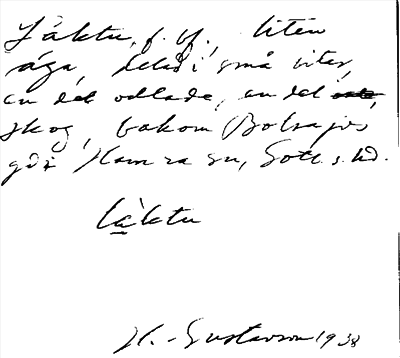 Läktu, f. sf., liten
äga, delad i små viter,
en del odlade, en del
skog, bakom Botvajvs
gdr Hamra sn, Gotl. s. hd.
làktu
H. Gustavson 1938